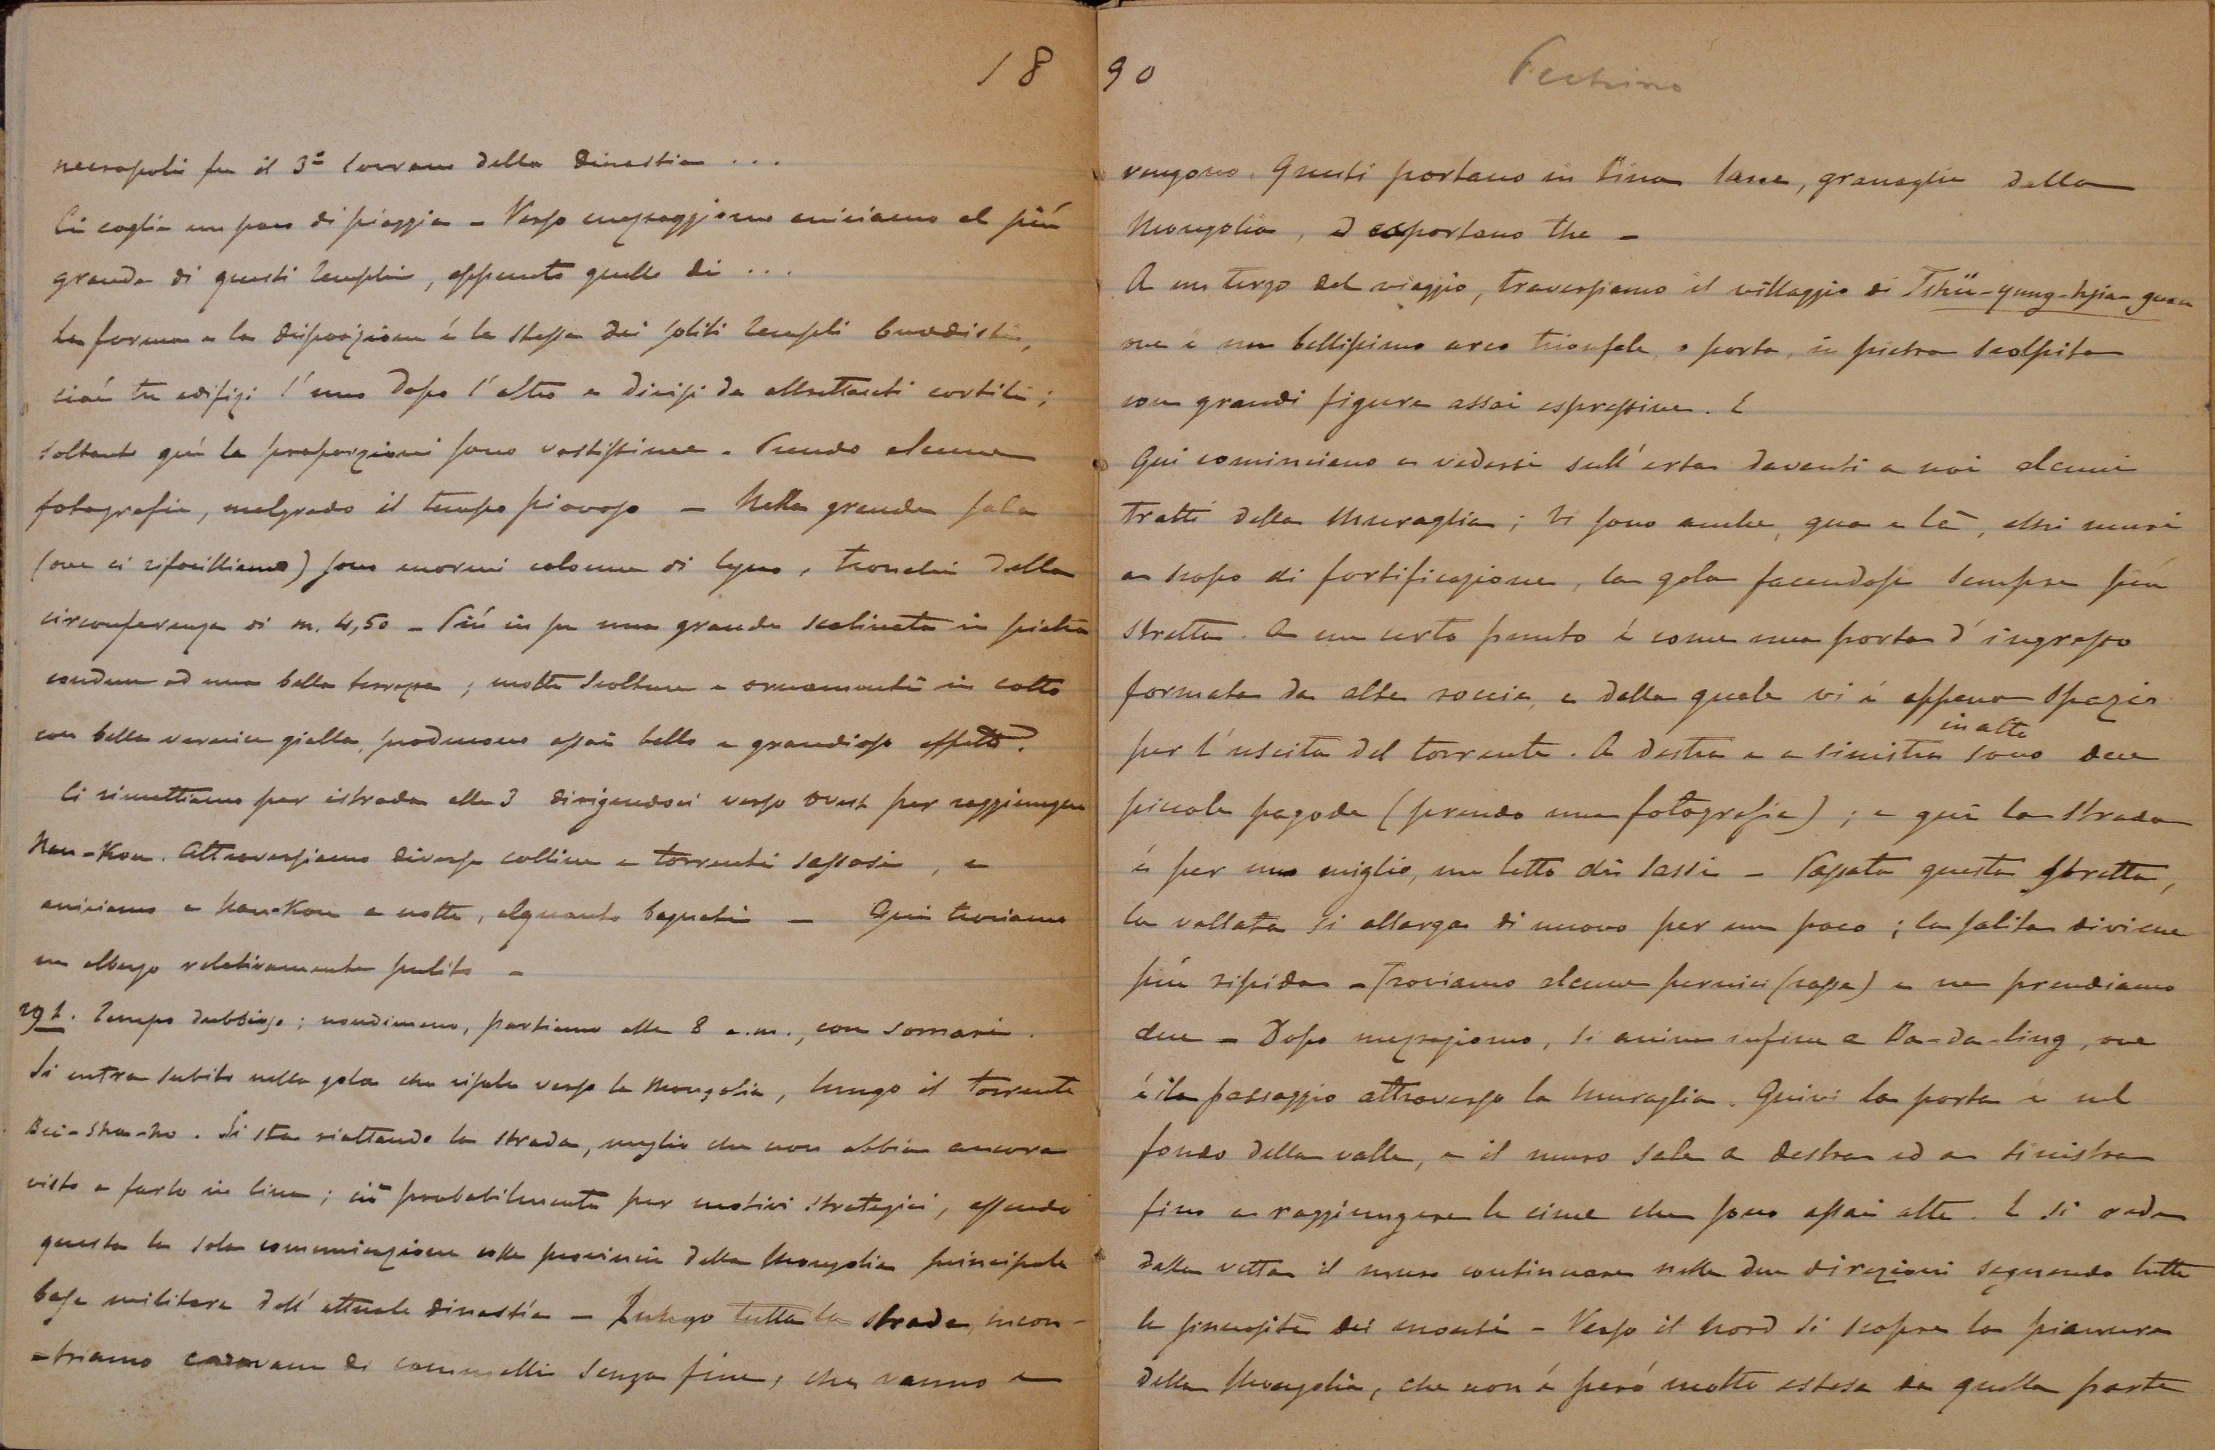 18
necropoli fu il 3º sovrano della dinastia ...
Ci coglie un poco di pioggia – Verso mezzoggiorno arriviamo al più
grande di questi templi, appunto quello di ...
La forma e la disposizione é la stessa dei soliti templi buddisti,
cioé tre edifizi l'uno dopo l'altro e divisi da altrettanti cortili;
soltanto quì le proporzioni sono vastissime. Prendo alcune
fotografie, malgrado il tempo piovoso – Nella grande sala
(ove ci rifocilliamo) sono enormi colonne di legno, tronchi della
circonferenza di m. 4,50 – Più in su una grande scalinata in pietra
conduce ad una bella terrazza; molte scolture e ornamenti in cotto
con bella vernice gialla, producono assai bello e grandioso effetto.
Ci rimettiamo per istrada alle 3 dirigendosi verso ovest per raggiungere
Nan-Kou. Attraversiamo diverse colline e torrenti sassosi, e
arriviamo a Nan-Kou a notte, alquanto bagnati – Qui troviamo
un albergo relativamente pulito –
29 t. Tempo dubbioso; nondimeno, partiamo alle 8 a.m., con somari.
Si entra subito nella gola che risale verso la Mongolia, lungo il torrente
Bei-sha-ho. Si sta riattando la strada, meglio che non abbia ancora
visto a farlo in Cina; ciò probabilmente per motivi strategici, essendo
questa la sola comunicazione colle provincie della Mongolia principale
base militare dell'attuale dinastia – Lungo tutta la strada, incon-
-triamo carovane di cammelli senza fine, che vanno e
90 Pechino
vengono. Questi portano in Cina lane, granaglie della
Mongolia, ed esportano the –
A un terzo del viaggio, traversiamo il villaggio di Tshü-yung-hsia-guan
ove é un bellissimo arco trionfale, o porta, in pietra scolpita
con grandi figure assai espressive. E
Qui cominciano a vedersi sull'erta davanti a noi alcuni
tratti della Muraglia; Vi sono anche, qua e là, altri muri
a scopo di fortificazione, la gola facendosi sempre più
stretta. A un certo punto é come una porta d'ingresso
formata da alte roccie, e dalla quale vi é appena spazio
per l'uscita del torrente. A destra e a sinistra in alto sono due
piccole pagode (prendo una fotografia); e quì la strada
é per uno miglio, un letto di sassi – Passata questa stretta,
la vallata si allarga di nuovo per un poco; la salita diviene
più ripida – Troviamo alcune pernici (rosse) e ne prendiamo
due – Dopo mezzogiorno, si arriva infine a Ba-da-ling, ove
é il passaggio attraverso la Muraglia. Quivi la porta é nel
fondo della valle, e il muro sale a destra ed a sinistra
fino a raggiungere le cime che sono assai alte. E si vede
dalla vetta il muro continuare nelle due direzioni seguendo tutte
le sinuosità dei monti – Verso il nord si scopre la pianura
della Mongolia, che non é peró molto estesa da quella parte